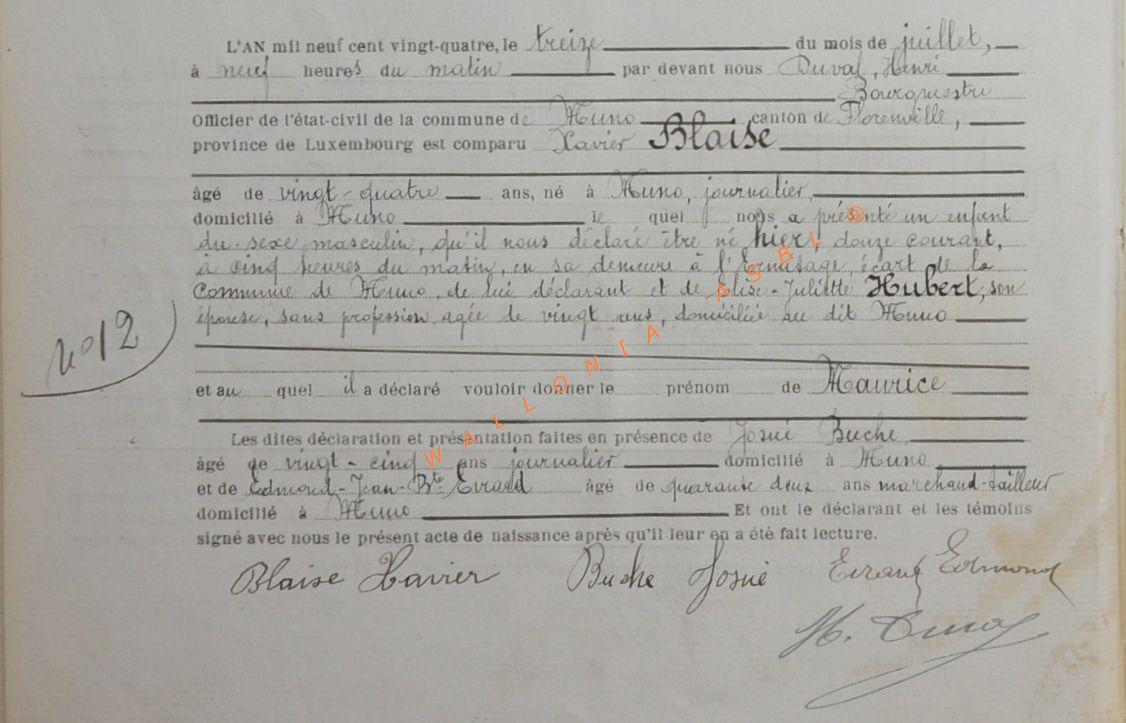 L'AN mil neuf cent vingt-quatre, le treize du mois de juillet,
à neuf heures du matin par devant nous Duval, Henri
Bourgmestre
Officier de l'état-civil de la commune de Muno canton de Florenville,
province de Luxembourg est comparu Xavier Blaise
âgé de vingt-quatre ans, né à Muno, journalier,
domicilié à Muno le quel nous a présenté un enfant
du sexe masculin, qu'il nous déclaré être né hier, douze courant,
à cinq heures du matin, en sa demeure à l'Ermitage, écart de la
Commune de Muno, de lui déclarant et de Elise-Juliette Hubert, son
épouse, sans profession, agée de vingt ans, domiciliée au dit Muno
No 12
et au quel il a déclaré vouloir donner le prénom de Maurice
Les dites déclaration et présentation faites en présence de Josué Buche,
âgé de vingt-cinq ans journalier domicilié à Muno
et de Edmond-Jean-Bte Evrard âgé de quarante deux ans marchand-tailleur
domicilié à Muno Et ont le déclarant et les témoins
signé avec nous le présent acte de naissance après qu'il leur en a été fait lecture.
Blaise Xavier Buche Josué Evrard Edmond
H. Duval
WALLONIA ASBL ©